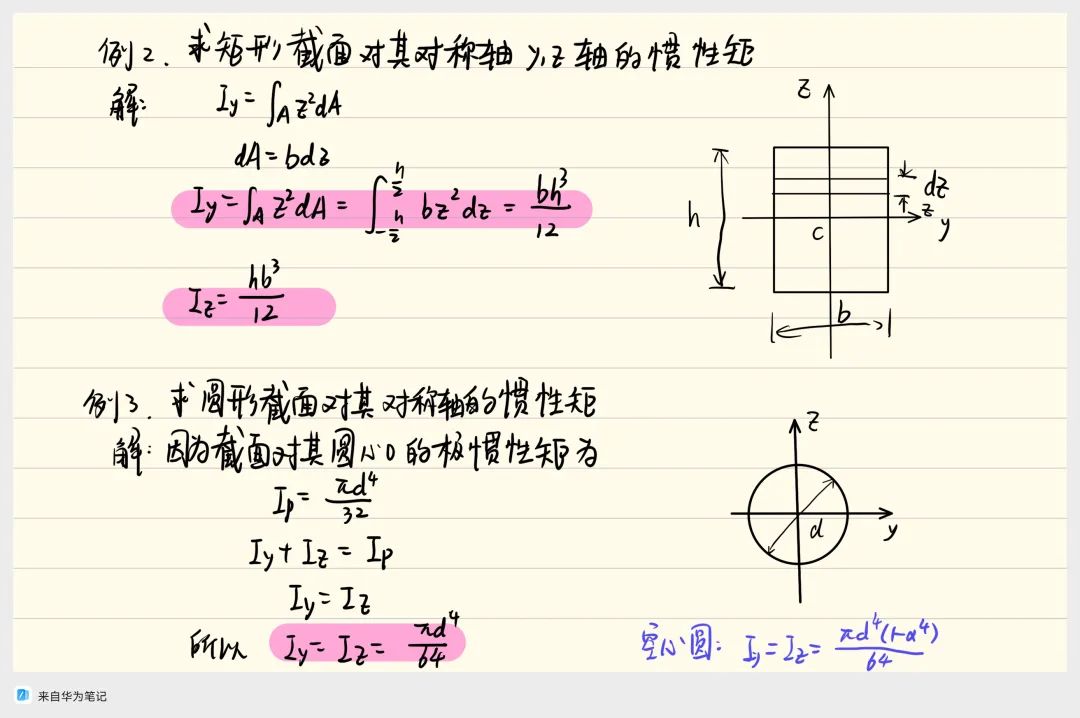 例2. 求矩形截面对其对称轴 y,z 轴的惯性矩
解: Iy = ∫A z²dA
dA = bdz
Iy = ∫A z²dA = ∫_{-h/2}^{h/2} bz²dz = bh³/12
Iz = hb³/12
z
h
dz
z
y
c
b
例3. 求圆形截面对其对称轴的惯性矩
解: 因为截面对其圆心O的极惯性矩为
Ip = πd⁴/32
Iy + Iz = Ip
Iy = Iz
所以 Iy = Iz = πd⁴/64
z
y
d
空心圆: Iy = Iz = πd⁴(1-α⁴)/64
来自华为笔记